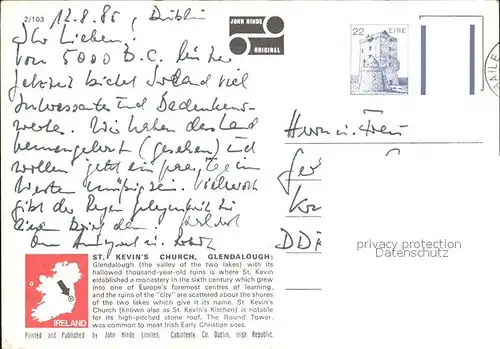 2/103
12.8.85, Dublin
JOHN HINDE
ORIGINAL
22 EIRE
Ihr Lieben!
Von 5000 B.C. bis zur
Jetztzeit bietet Irland viel
Interessantes und Bedenkens-
wertes. Wir haben das Land
(gesehen) und
wollen jetzt ein paar Tage im
Westen müßig sein. Vielleicht
gibt der Regen Gelegenheit zu
Herrn u. Frau
DDR
privacy protection
Datenschutz
ST. KEVIN'S CHURCH, GLENDALOUGH:
Glendalough (the valley of the two lakes) with its
hallowed thousand-year-old ruins is where St. Kevin
established a monastery in the sixth century which grew
into one of Europe's foremost centres of learning,
and the ruins of the "city" are scattered about the shores
of the two lakes which give it its name. St. Kevin's
Church (known also as St. Kevin's Kitchen) is notable
for its high-pitched stone roof. The Round Tower
was common to most Irish Early Christian sites.
IRELAND
Printed and Published by John Hinde Limited, Cabinteely, Co. Dublin, Irish Republic.